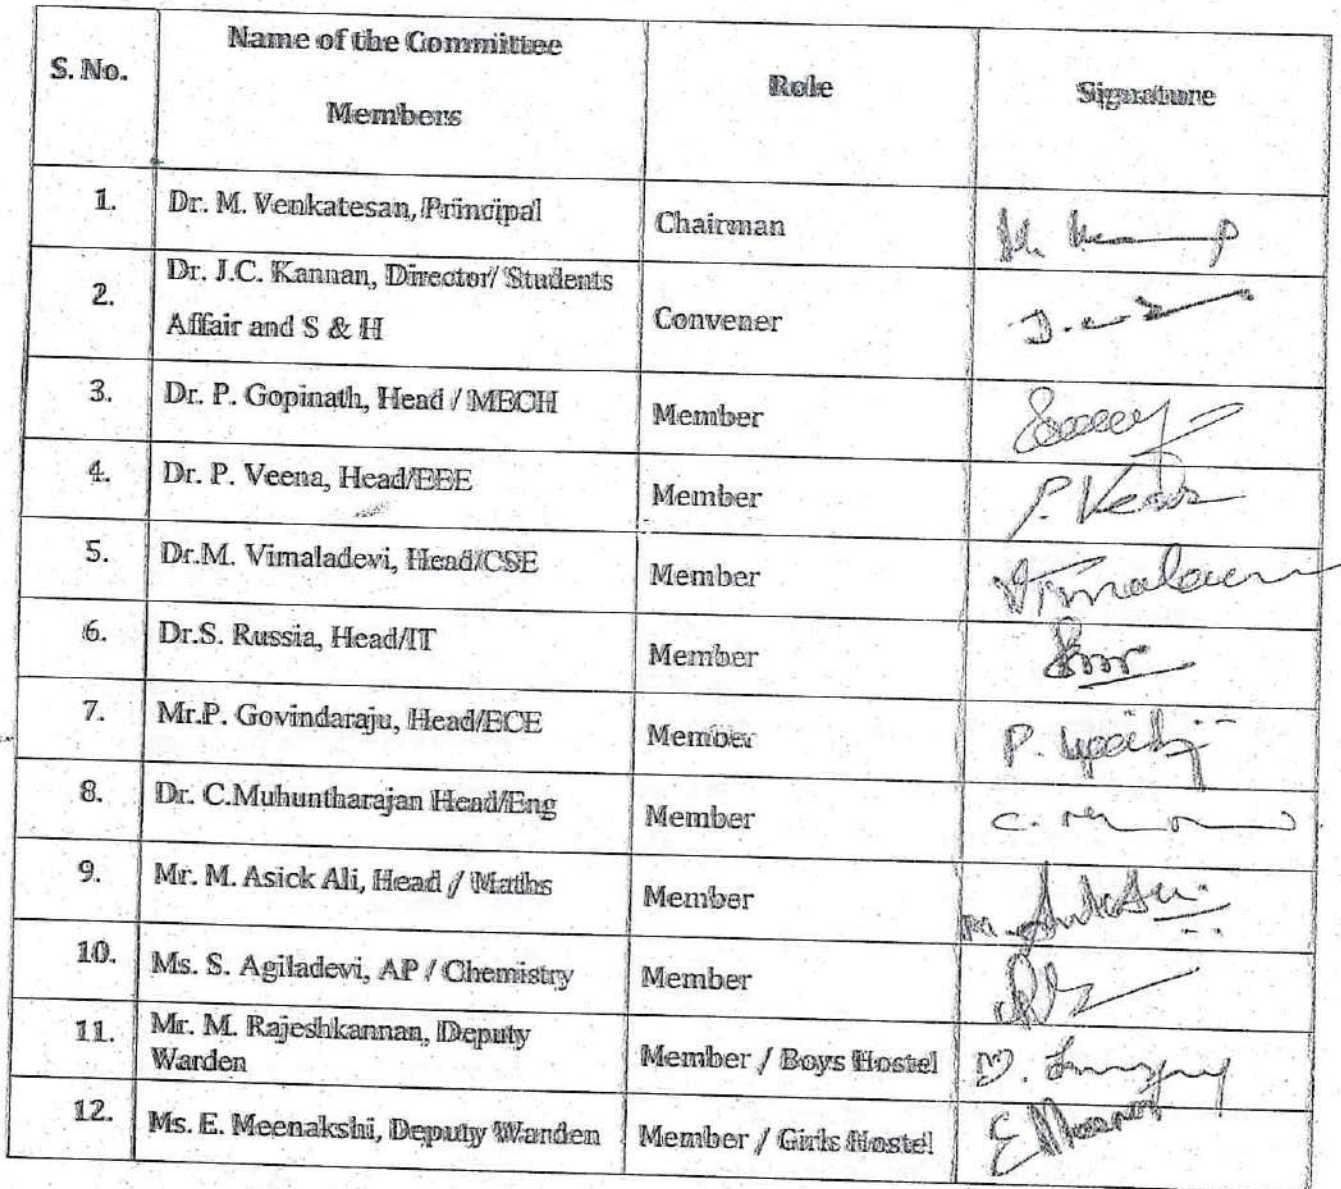 S. No.
Name of the Committee
Members
Role
Signature
1.
Dr. M. Venkatesan, Principal
Chairman
2.
Dr. J.C. Kannan, Director/ Students
Affair and S & H
Convener
3.
Dr. P. Gopinath, Head / MECH
Member
4.
Dr. P. Veena, Head/EEE
Member
P. Veena
5.
Dr.M. Vimaladevi, Head/CSE
Member
6.
Dr.S. Russia, Head/IT
Member
7.
Mr.P. Govindaraju, Head/ECE
Member
8.
Dr. C.Muhuntharajan Head/Eng
Member
9.
Mr. M. Asick Ali, Head / Maths
Member
10.
Ms. S. Agiladevi, AP / Chemistry
Member
11.
Mr. M. Rajeshkannan, Deputy
Warden
Member / Boys Hostel
12.
Ms. E. Meenakshi, Deputy Warden
Member / Girls Hostel